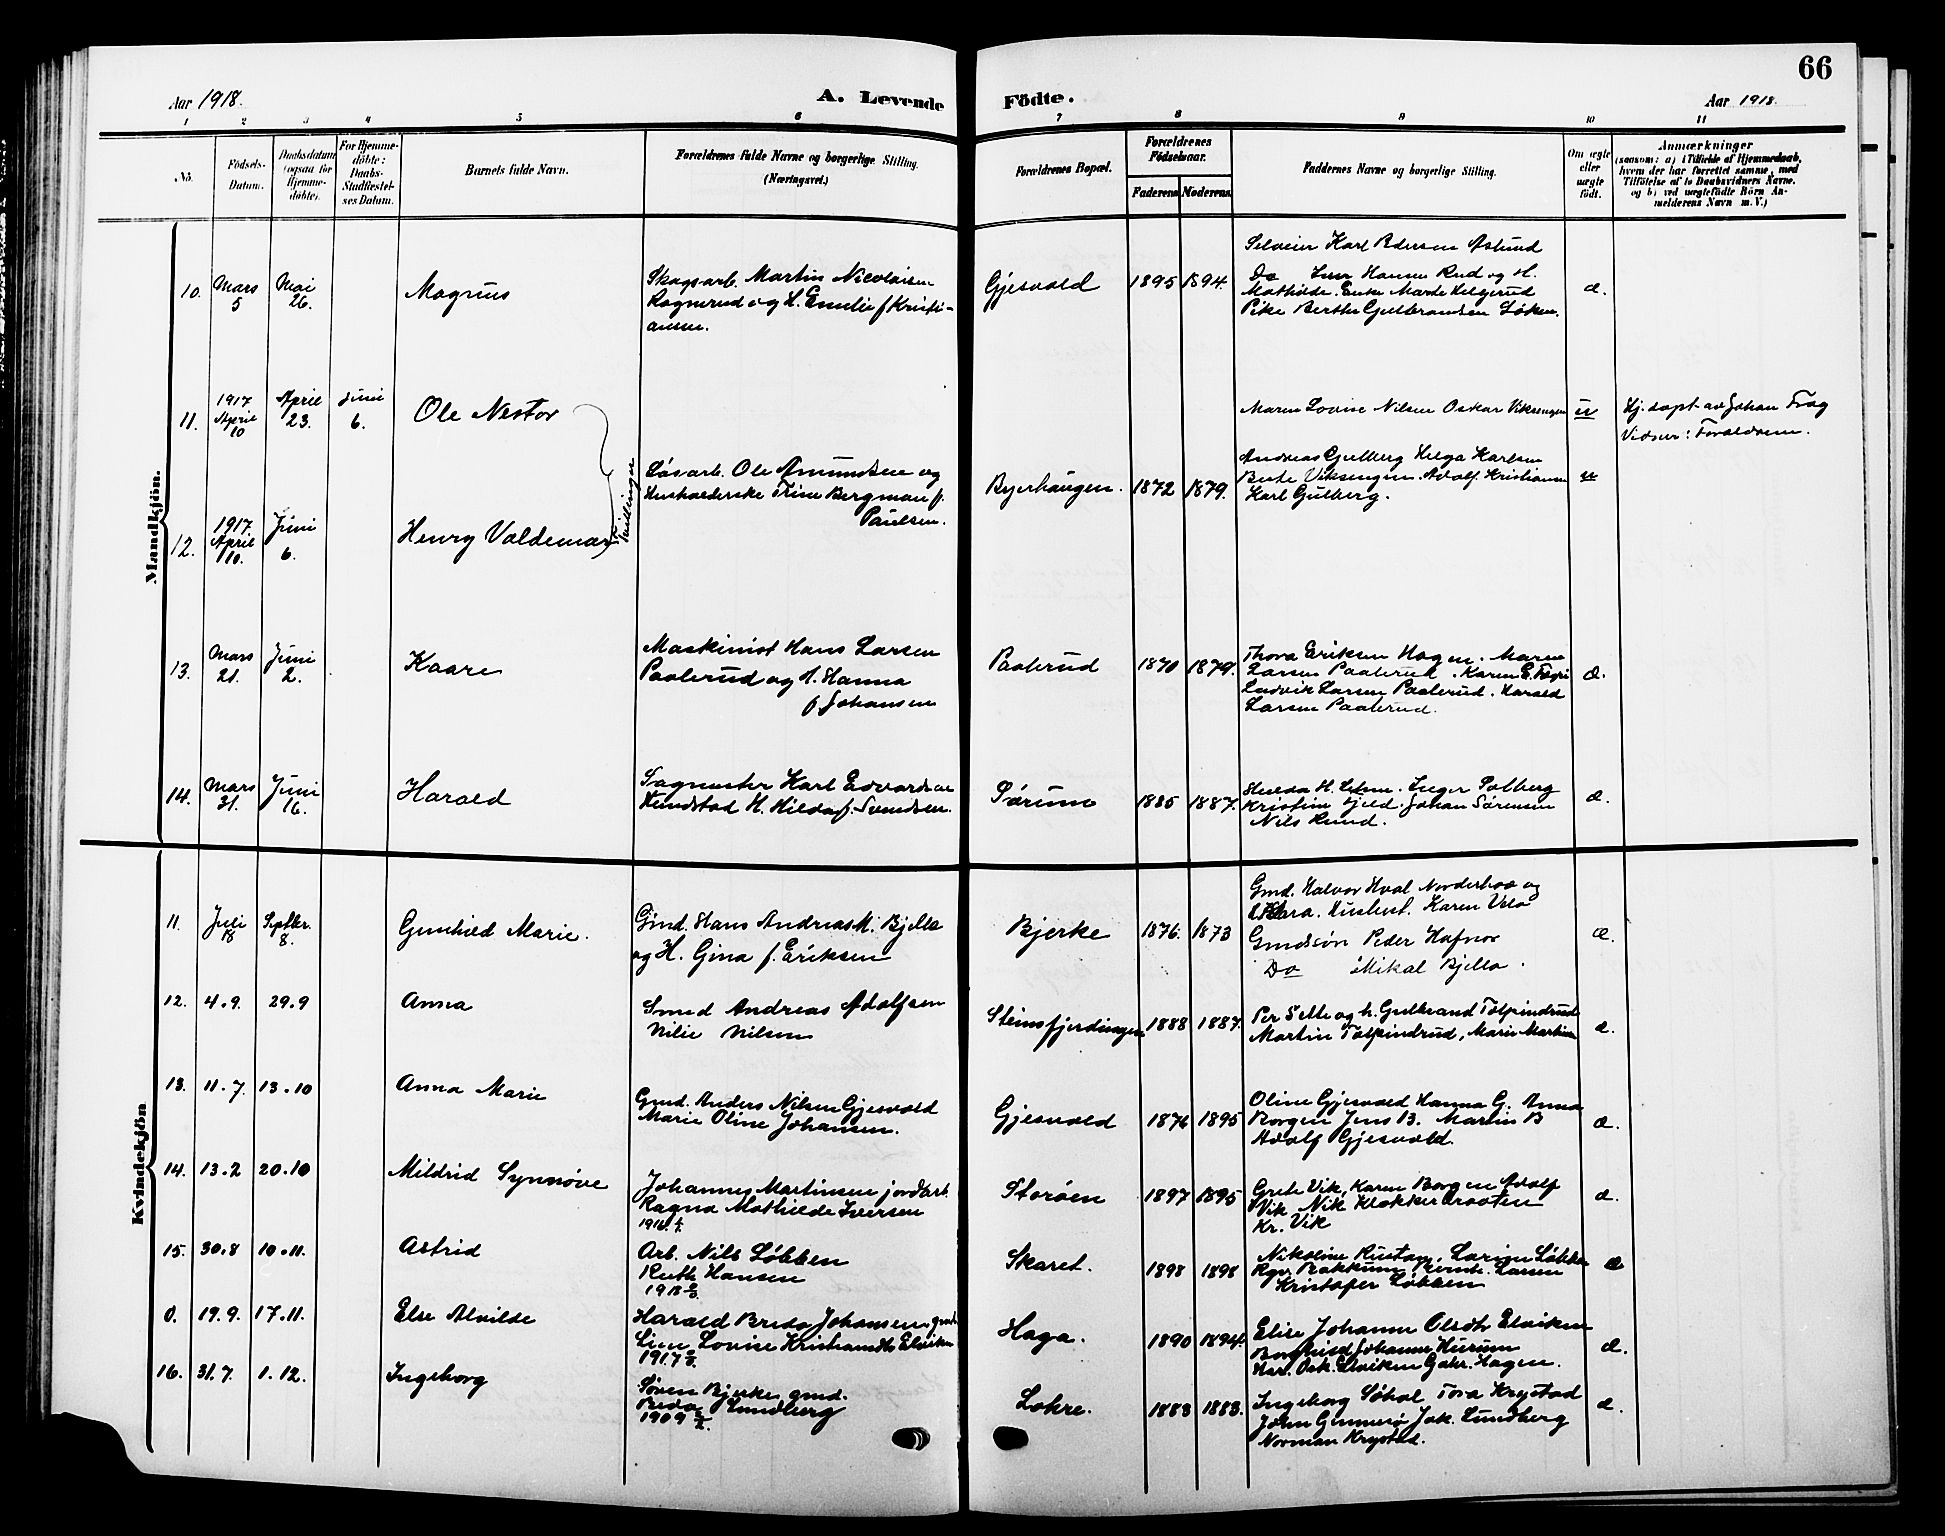 66
Aar 1918.
A. Levende
Födte.
Aar 1918.
1 2 3 4 5 6 7 8 9 10 11
No.
Födsels-
Datum.
Daabsdatum
(ogsaa for
Hjemme-
döbte).
For Hjemme-
döbte:
Daabs-
Stadfæstel-
ses Datum.
Barnets fulde Navn.
Forældrenes fulde Navne og borgerlige Stilling.
(Næringsvei.)
Forældrenes Bopæl.
Forældrenes
Födselsaar.
Faderens
Moderens
Faddernes Navne og borgerlige Stilling.
Om ægte
eller
uægte
födt.
Anmærkninger
(saasom: a) i Tilfælde af Hjemmedaab,
hvem der har forrettet samme, med
Tilföielse af to Daabsvidners Navne,
og b) ved uægtefödte Börn An-
melderens Navn m. V.)
Mandkjön.
10.
Mars
5
Mai
26.
Magnus
Skogsarb. Martin Nicolaisen
Rognerud og H. Emilie f Kristi-
ansen.
Gjesvold
1895
1894.
Selveier Karl Pedersen Aslund
Do Hansen Rud og H.
Mathilde. Enke Marte Helgerud
Pike Berthe Gulbrandsen Løken.
æ.
11.
1917
April
10
April
23.
Juni
6.
Ole Nestor
Maren Lovise Nilsen Oskar Viksengen
u
Hj. døpt av Johan Frog
Vidner: Foreldrene.
Tvillinger
Løsarb. Ole Amundsen og
Husholderske Trine Bergman f.
Paulsen.
Byerhaugen.
1872
1879.
Andreas Gulberg Helga Karlsen
Berte Viksengen Adolf Kristiansen
Karl Gulberg.
u
12.
1917
April
10.
Juni
6.
Henry Valdemar
13.
Mars
21.
Juni
2.
Kaare
Maskinist Hans Larsen
Paalerud og H. Hanna
f Johansen
Paalerud
1870
1879.
Thora Eriksen Hagen. Maren
Larsen Paalerud. Karen E.
Ludvik Larsen Paalerud. Harald
Larsen Paalerud.
æ.
14.
Mars
31.
Juni
16.
Harald
Sagmester Karl Edvardsen
Hundstad H. Hilda f. Svendsen.
Sørum
1885
1887.
Hulda H. Inger Solberg
Kristine Fjeld. Johan Sørensen
Nils Lund.
æ.
Kvindekjön
11.
Juli
18
Septbr.
8.
Gunhild Marie.
Gmd. Hans Andreas M. Bjella
og H. Gina f. Eriksen
Bjerke
1876.
1873
Gmd. Halvor Hval Norderhov og
Klara. Hushest. Karen Velo
Gmdsøn Peder Hafnor
Do Mikal Bjella.
æ.
12.
4.9.
29.9
Anna
Smed Andreas Adolfsen
Nilie Nilsen
Steinsfjerdingen
1888
1887.
Per Sette og h. Gulbrand Tolpindrud
Martin Tolpindrud, Marie Martinsen
æ.
13.
11.7.
13.10
Anna Marie
Gmd. Anders Nilsen Gjesvold
Marie Oline Johansen.
Gjesvold
1876
1895
Oline Gjesvold Hanna G. Anna
Borgen Jens B. Martin B
Adolf Gjesvold.
æ.
14.
13.2
20.10
Mildrid Synnøve
Johannes Martinsen jordarb.
Ragna Mathilde Iversen
1916
Storøen
1897
1895
Grete Vik, Karen Borgen Adolf
Vik Nik Klokkerbraaten
Kr. Vik
æ.
15.
30.8
10.11.
Astrid
Arb. Nils Løbben
Ruth Hansen
1918
Skaret.
1898
1898
Nikoline Rustan, Larine Løbben
Bakkum Bernt Larsen
Kristofer Løbben
æ
0.
19.9.
17.11.
Else Alvilde
Harald Bredo Johansen, gmd.
Lina Lovise Kristiansdtr Elviken
1917
Haga.
1890
1894.
Elise Johanne Olsdtr Elviken
Borghild Johanne Hurum
Har. Osk. Elviken Gabr. Hagen.
æ.
16.
31.7.
1.12.
Ingeborg
Søren Bjerke, gmd.
Lundberg
1909
Lohre.
1883
1883.
Ingeborg Søhol Tora Krystad
John Jak. Lundberg
Norman Krystad.
æ.